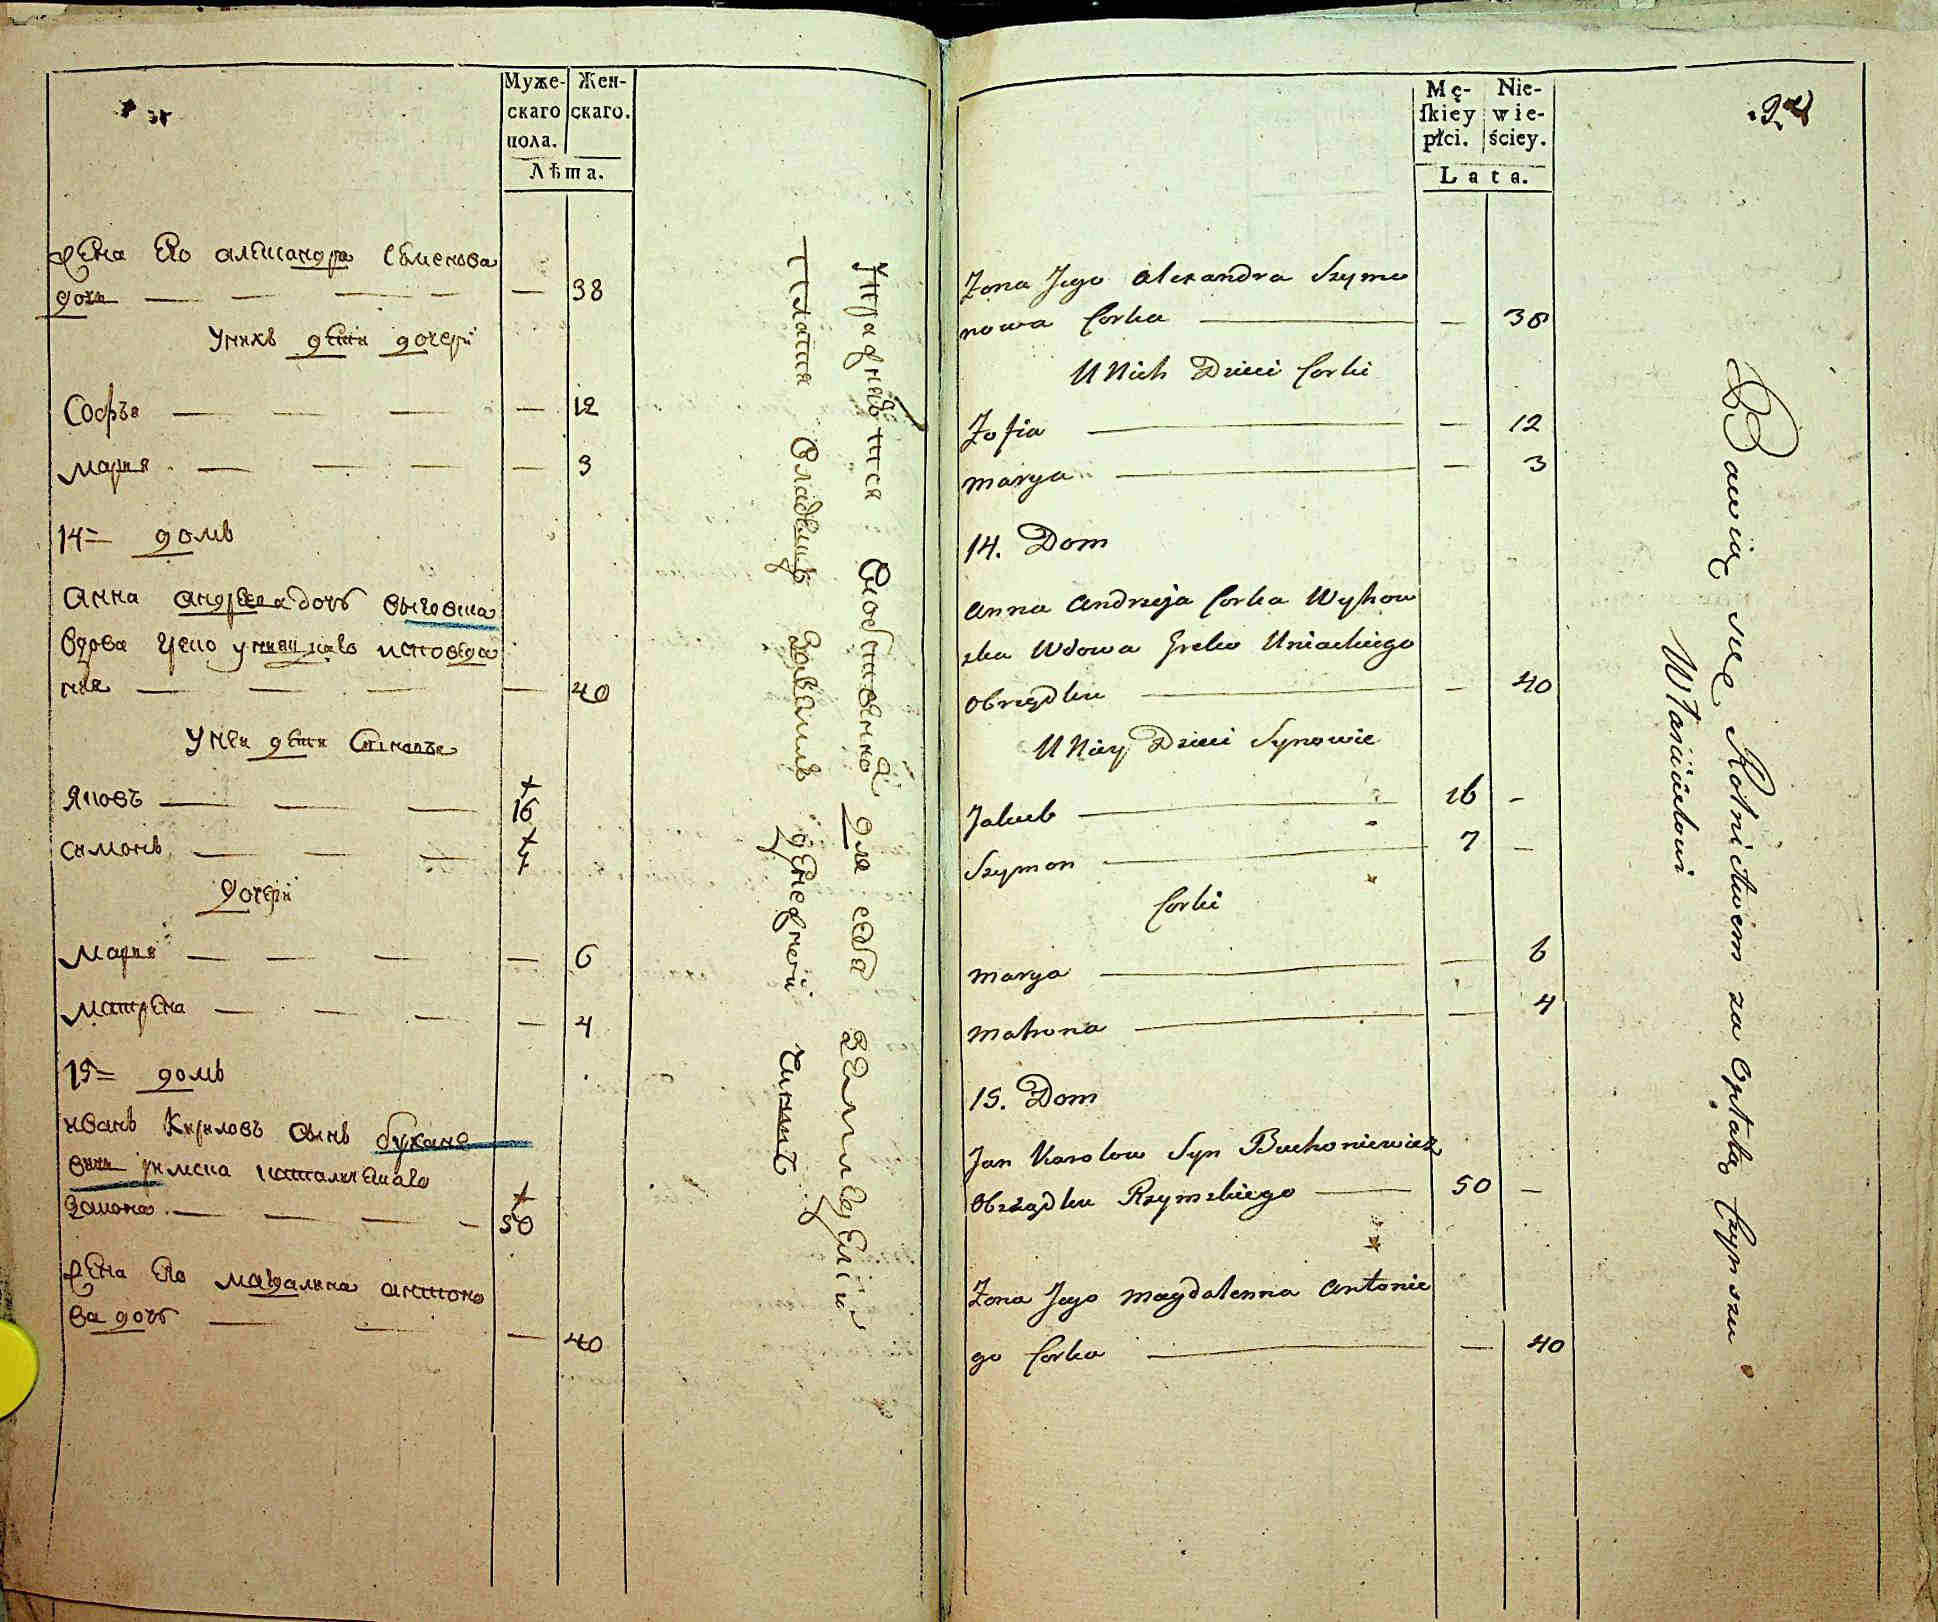 Муже-
скаго
пола.
Жен-
скаго.
Лѣта.
Жена Его александра Семенова
дочь — — — — — 38
Унихъ дети дочери
Софъя — — — — 12
мария — — — — 3
14= домъ
Анна андреева дочъ выговска
вдова греко униацкаго исповеда
ния — — — — 40
Унеи дети Сыновъя
Яковъ — — — 16
симонъ — — — 7
дочери
Мария — — — — 6
матрена — — — — 4
15= домъ
иванъ Кириловъ сынъ бухано
вичъ римска католическаго
закона — — — — 50
Жена Его магдалина антоно
ва дочъ — — — 40
Упражняется Собственно для себя земледелiи
платя владельцу денежной чиншъ
Mę-
ſkiey
płci.
Nie-
wie-
ściey.
Lata.
Zona Jego Alexandra Szymo
nowa Corka — — 38
U Nich Dzieci Corki
Zofia — — 12
Marya — — 3
14. Dom
Anna Andrzeja Corka Wyhow
ska Wdowa Greko Uniackiego
Obrządku — — 40
U Niey Dzieci Synowie
Jakub — 16 —
Szymon — 7 —
Corki
Marya — — 6
Matrona — — 4
15. Dom
Jan Karolow Syn Buchoniewicz
Obrządku Rzymskiego — 50 —
Zona Jego Magdalenna Antonie
go Corka — — 40
Bawią się Rolnictwem za Opłatą Czynszu
Właścicielowi